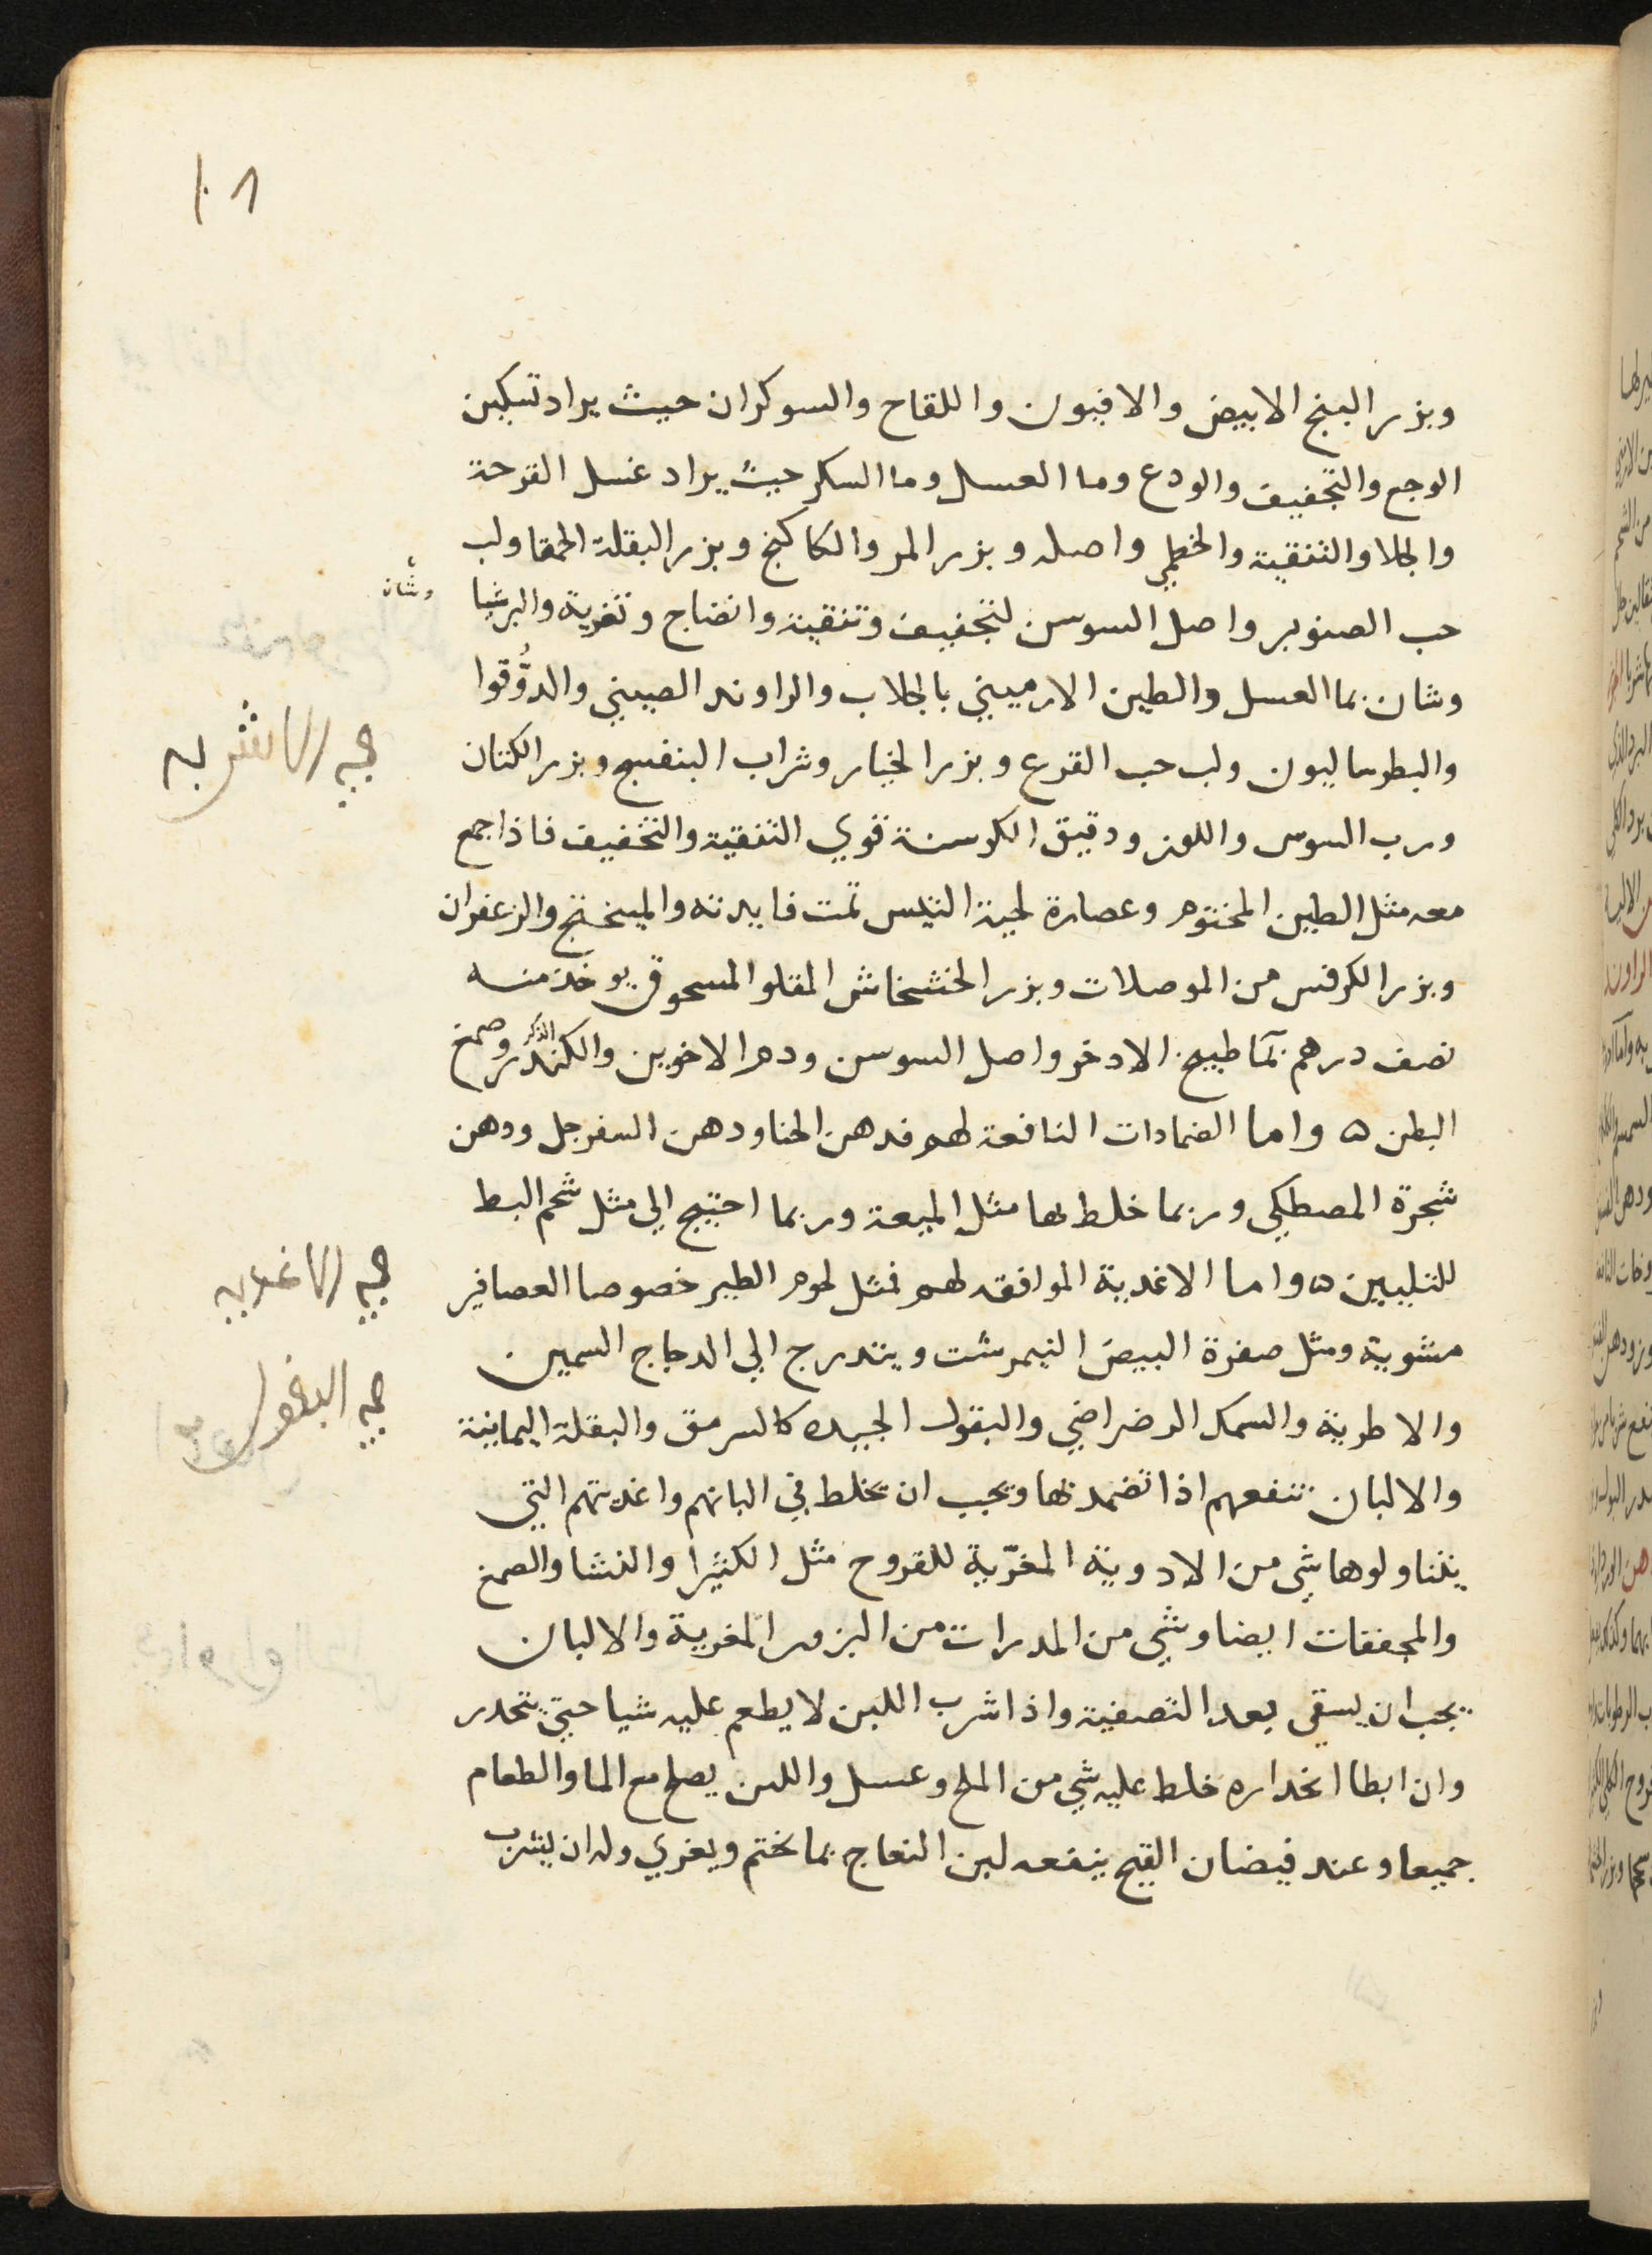 ١٠٨
وبزر البنج الابيض والافيون واللقاح والسوكران حيث يراد تسكين
الوجع والتجفيف والودع وما العسل وما السكر حيث يراد غسل القرحة
والجلا والتنقية والخطمي واصله وبزر المر والكاكنج وبزر البقلة الحمقا ولب
حب الصنوبر واصل السوسن لتجفيف وتنقية وانضاج وتغرية والبرشيا
وشان
وشان بما العسل والطين الارميني بالجلاب والراوند الصيني والدُّوقوا
في الاشربه
والبطرساليون ولب حب القرع وبزر الخيار وشراب البنفسج وبزر الكتان
ورب السوس واللوز ودقيق الكرسنة قوي التنقية والتخفيف فاذا جمع
معه مثل الطين المختوم وعصارة لحية التيس تمت فايدته والميبختج والزعفران
وبزر الكرفس من الموصلات وبزر الخشخاش المقلو المسحوق يوخذ منه
نصف درهم بمآ طبيخ الادخر واصل السوسن ودم الاخوين والكندر الذكر وصمغ
البطن ه واما الضمادات النافعة لهم فدهن الحنا ودهن السفرجل ودهن
شجرة المصطكي وربما خلط بها مثل الميعة وربما احتيج الي مثل شحم البط
في الاغذيه
للتليين ه واما الاغدية الموافقه لهم فمثل لحوم الطير خصوصا العصافير
مشوية ومثل صفرة البيض النيمرشت ويتدرج الي الدجاج السمين
في البقول
والاطرية والسمك الرضراضي والبقول الجيده كالسرمق والبقلة اليمانية
والالبان تنفعهم اذا تضمد بها ويجب ان يخلط في البانهم واغديتهم التي
يتناولوها شي من الادوية المغرّية للقروح مثل الكثيرا والنشا والصمغ
والمجففات ايضا وشي من المدرات من البزور المغرية والالبان
يجب ان يسقي بعد التصفية واذا شرب اللبن لا يطعم عليه شيا حتي ينحدر
وان ابطا انحداره خلط عليه شي من الملح وعسل واللبن يصلح مع الما والطعام
جميعا وعند فيضان القيح ينفعه لبن النعاج بما يختم ويغري وله ان يشرب